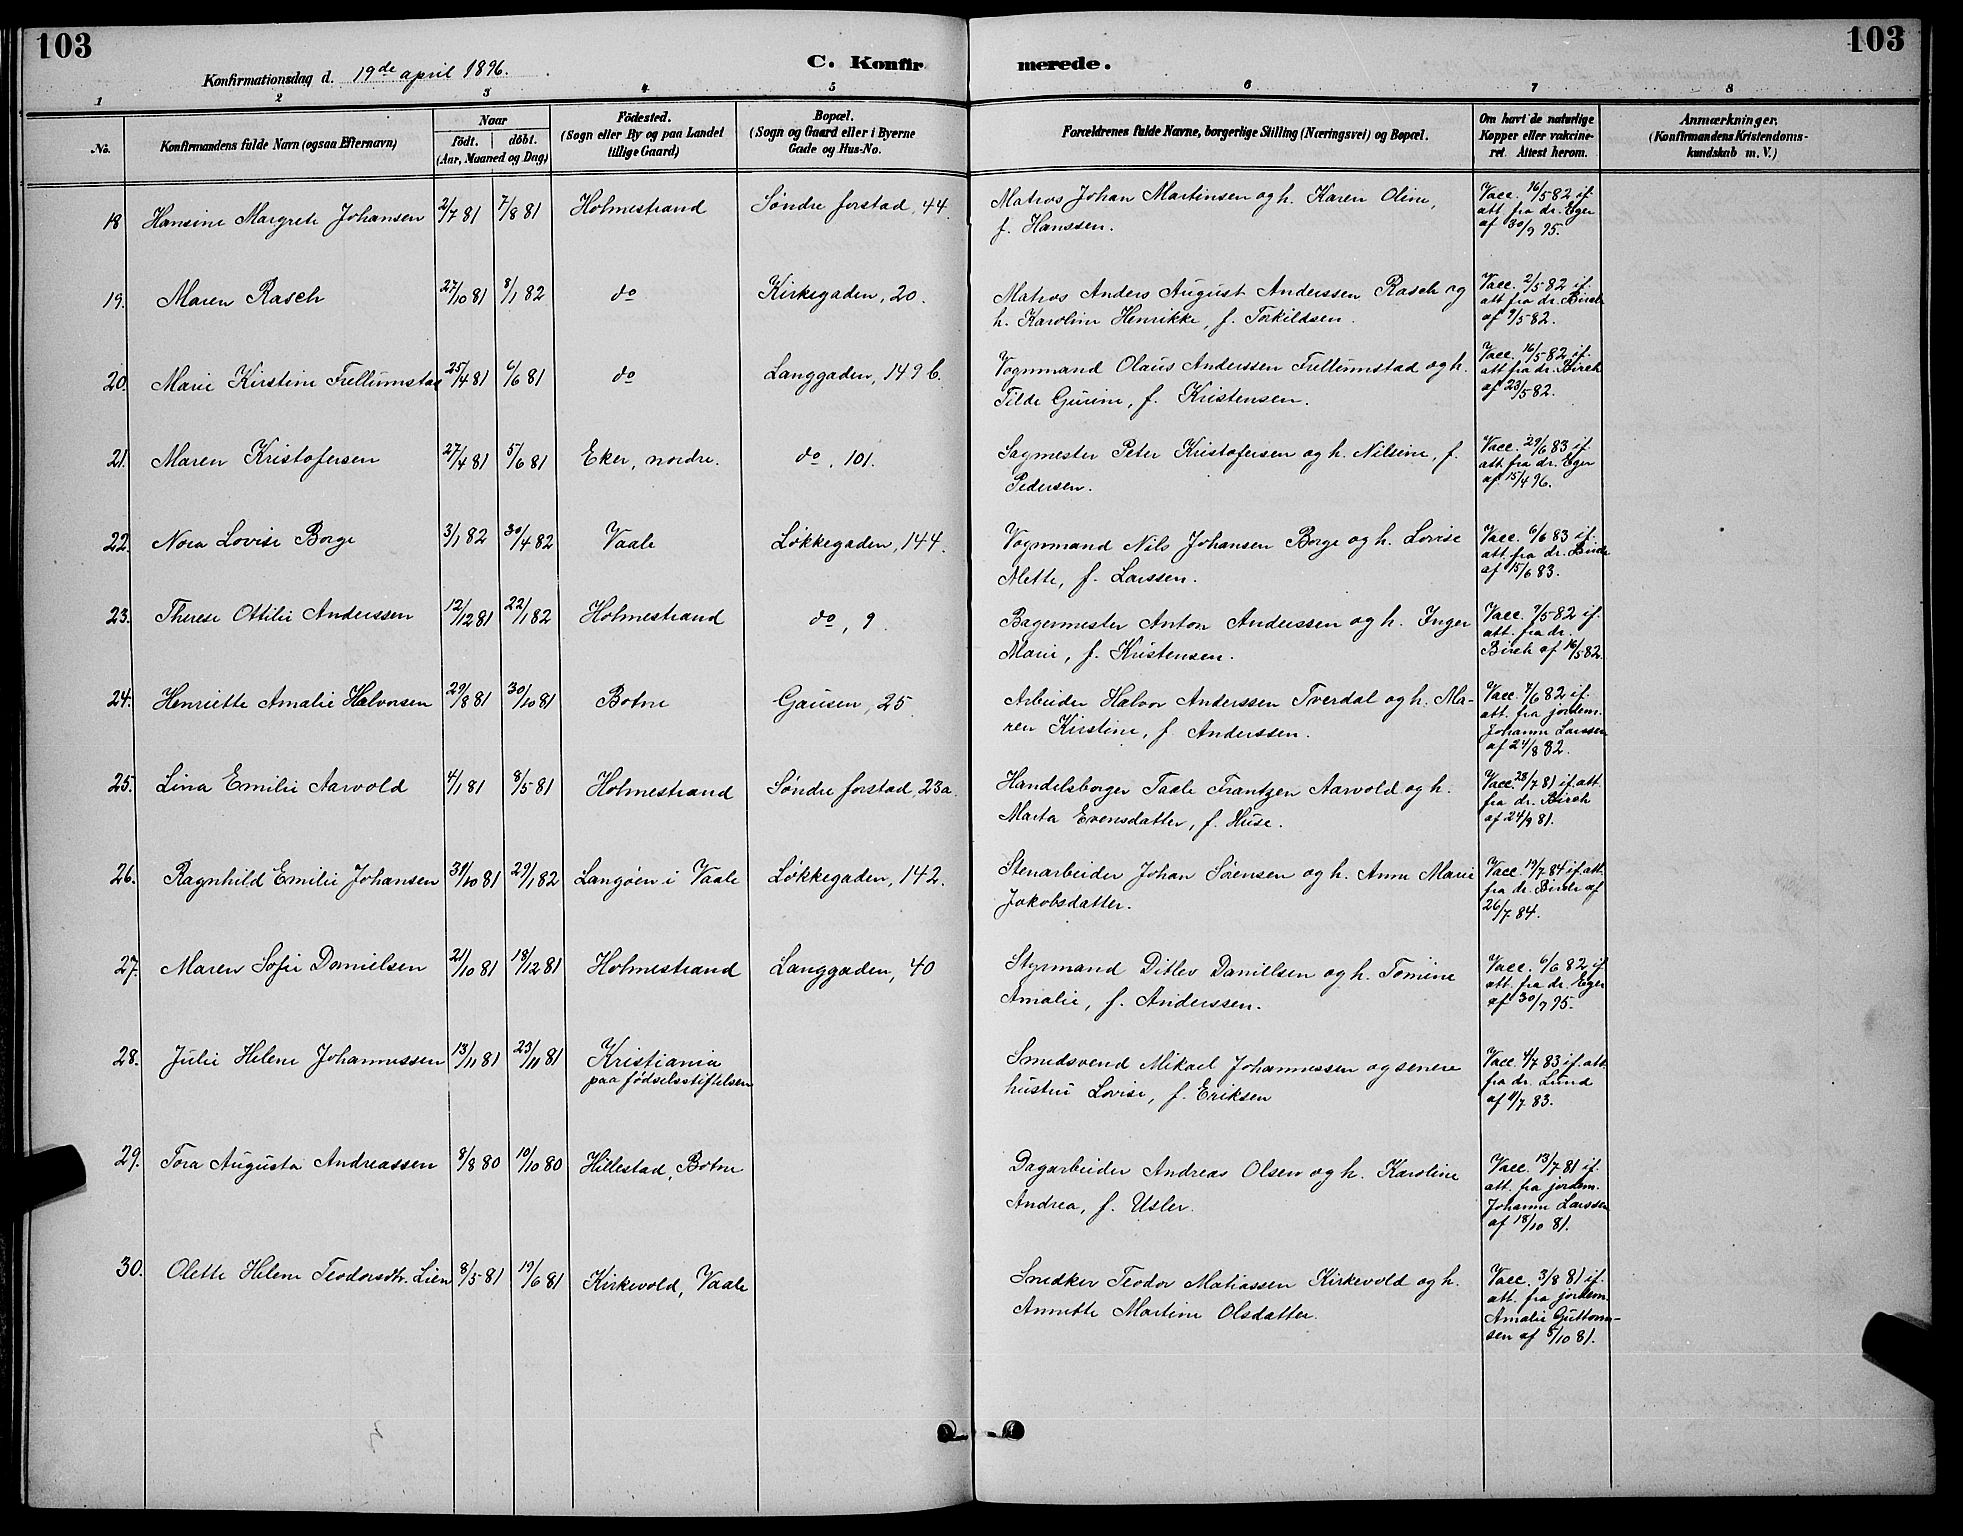 103
103
Konfirmationsdag d. 19de april 1896.
C. Konfirmerede.
1 2 3 4 5 6 7 8
No.
Konfirmandens fulde Navn (ogsaa Efternavn)
Naar
födt. döbt.
(Aar, Maaned og Dag)
Födested.
(Sogn eller By og paa Landet
tillige Gaard)
Bopæl.
(Sogn og Gaard eller i Byerne
Gade og Hus-No.
Forældrenes fulde Navne, borgerlige Stilling (Næringsvei) og Bopæl.
Om havt de naturlige
Kopper eller vakcine-
ret. Attest herom.
Anmærkninger.
(Konfirmandens Kristendoms-
kundskab m. V.)
18 Hansine Margrete Johansen 2/7 81 7/8 81 Holmestrand Søndre forstad, 44.
Matros Johan Martinsen og h. Karen Oline,
f. Hanssen.
Vacc. 16/5 82 if.
att. fra dr. Eger
af 30/9 95.
19. Maren Rasch 27/10 81 8/1 82 do Kirkegaden, 20.
Matros Anders August Anderssen Rasch og
h. Karoline Henrikke, f. Torkildsen.
Vacc. 2/5 82 if.
att. fra dr. Birch
af 9/5 82.
20. Marie Kirstine Frellumstad 25/4 81 6/6 81 do Langgaden, 149 b.
Vognmand Olaus Anderssen Frellumstad og h.
Tilde Gurine, f. Kristensen.
Vacc. 16/5 82 if.
att. fra dr. Birch
af 23/5 82.
21. Maren Kristofersen 27/4 81 5/6 81 Eker, nordre. do, 101.
Sagmester Peter Kristofersen og h. Nilsine, f.
Pedersen.
Vacc. 29/6 83 if.
att. fra dr. Eger
af 15/4 96.
22. Nora Lovise Borge 3/1 82 30/4 82 Vaale Løkkegaden, 144.
Vognmand Nils Johansen Borge og h. Lovise
Mette, f. Larssen.
Vacc. 6/6 83 if.
att. fra dr. Birch
af 15/6 83.
23. Therese Ottilie Anderssen 12/12 81 22/1 82 Holmestrand do, 9.
Bagermester Anton Anderssen og h. Inger
Marie, f. Kristensen.
Vacc. 9/5 82 if.
att. fra dr.
Birch af 16/5 82.
24. Henriette Amalie Halvorsen 29/8 81 30/10 81 Botne Gausen, 25.
Arbeider Halvor Anderssen Tverdal og h. Ma-
ren Kirstine, f. Anderssen.
Vacc. 7/6 82 if.
att. fra jordem.
Johanne Larssen
af 24/8 82.
25. Lina Emilie Aarvold 4/1 81 8/5 81 Holmestrand Søndre forstad, 23a.
Handelsborger Taale Frantzen Aarvold og h.
Marta Evensdatter, f. Huse.
Vacc. 28/7 81 if. att.
fra dr. Birch
af 24/9 81.
26. Ragnhild Emilie Johansen 31/10 81 29/1 82 Langöen i Vaale Løkkegaden, 142.
Stenarbeider Johan Sörensen og h. Anne Marie
Jakobsdatter.
Vacc. 19/7 84 if. att.
fra dr. Birch af
26/7 84.
27. Maren Sofie Danielsen 21/10 81 18/12 81 Holmestrand Langgaden, 40
Styrmand Ditlev Danielsen og h. Tomine
Amalie, f. Anderssen.
Vacc. 6/6 82 if.
att. fra dr. Eger
af 30/9 95.
28. Julie Helene Johannessen 13/11 81 23/11 81 Kristiania
paa födselsstiftelsen
Smedsvend Mikael Johannessen og senere
hustru Lovise, f. Eriksen
Vacc. 4/7 83 if. att.
fra dr. Lund
af 11/7 83.
29. Tora Augusta Andreassen 8/8 80 10/10 80 Hillestad, Botne
Dagarbeider Andreas Olsen og h. Karoline
Andrea, f. Usler.
Vacc. 13/7 81 if.
att. fra jordem.
Johanne Larssen
af 18/10 81.
30. Olette Helene Teodorsdtr. Lien 8/5 81 19/6 81 Kirkevold, Vaale
Snedker Teodor Matiassen Kirkevold og h.
Annette Martine Olsdatter.
Vacc. 3/8 81 if.
att. fra jordem.
Amalie Guttorm-
sen af 8/10 81.